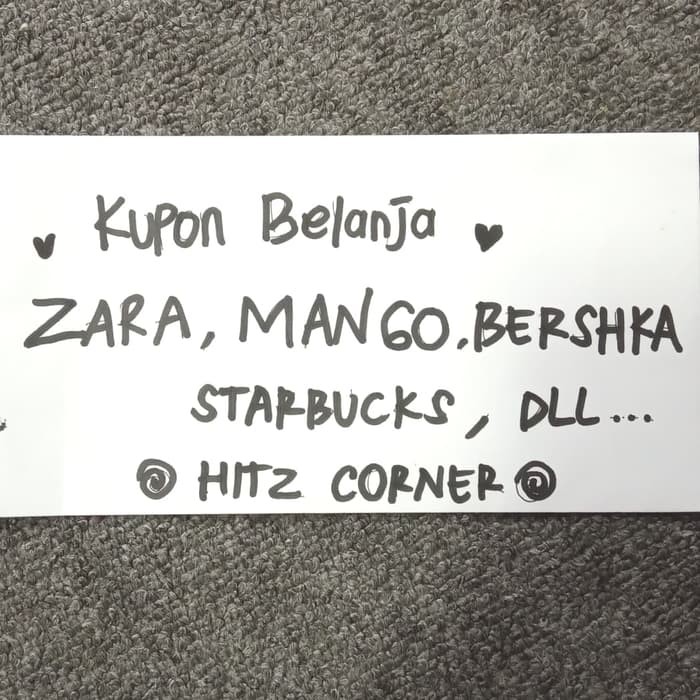 Kupon Belanja
ZARA, MANGO, BERSHKA
STARBUCKS, DLL...
HITZ CORNER